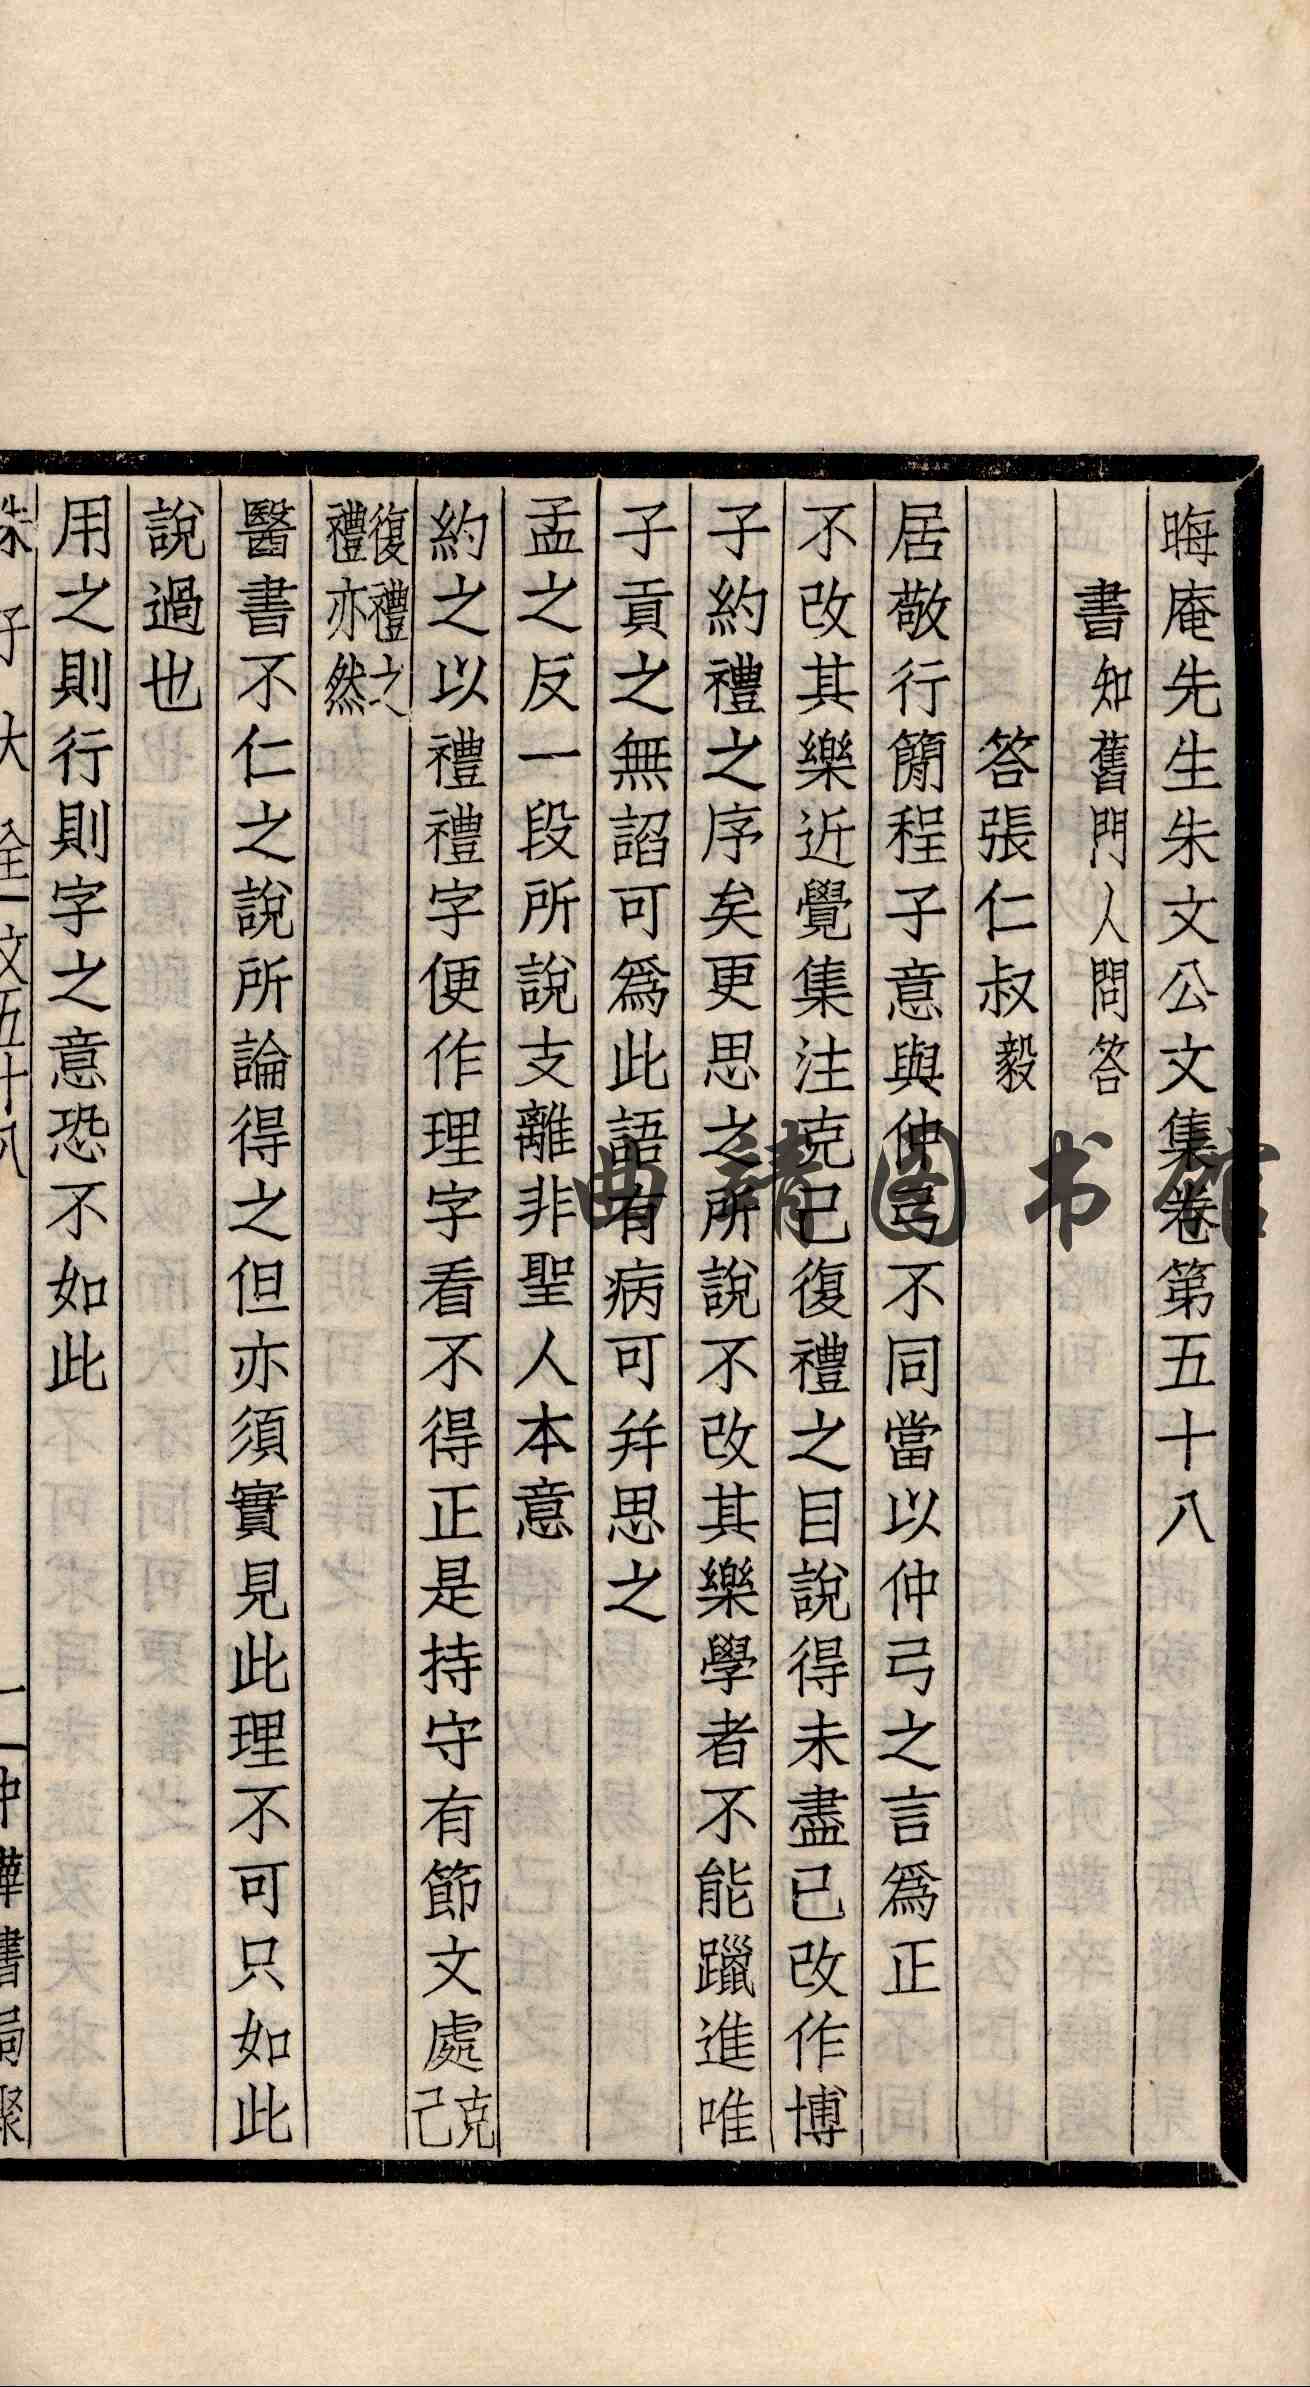 晦庵先生朱文公文集卷第五十八
書知舊門人問答
答張仁叔毅
居敬行簡程子意與仲弓不同當以仲弓之言爲正
不改其樂近覺集注克己復禮之目說得未盡已改作博
子約禮之序矣更思之所說不改其樂學者不能躐進唯
子貢之無諂可爲此語有病可并思之
孟之反一段所說支離非聖人本意
約之以禮禮字便作理字看不得正是持守有節文處克己
復禮之禮亦然
醫書不仁之說所論得之但亦須實見此理不可只如此
說過也
用之則行則字之意恐不如此
朱子大全 文五十八 一 中華書局聚
曲靖图书馆